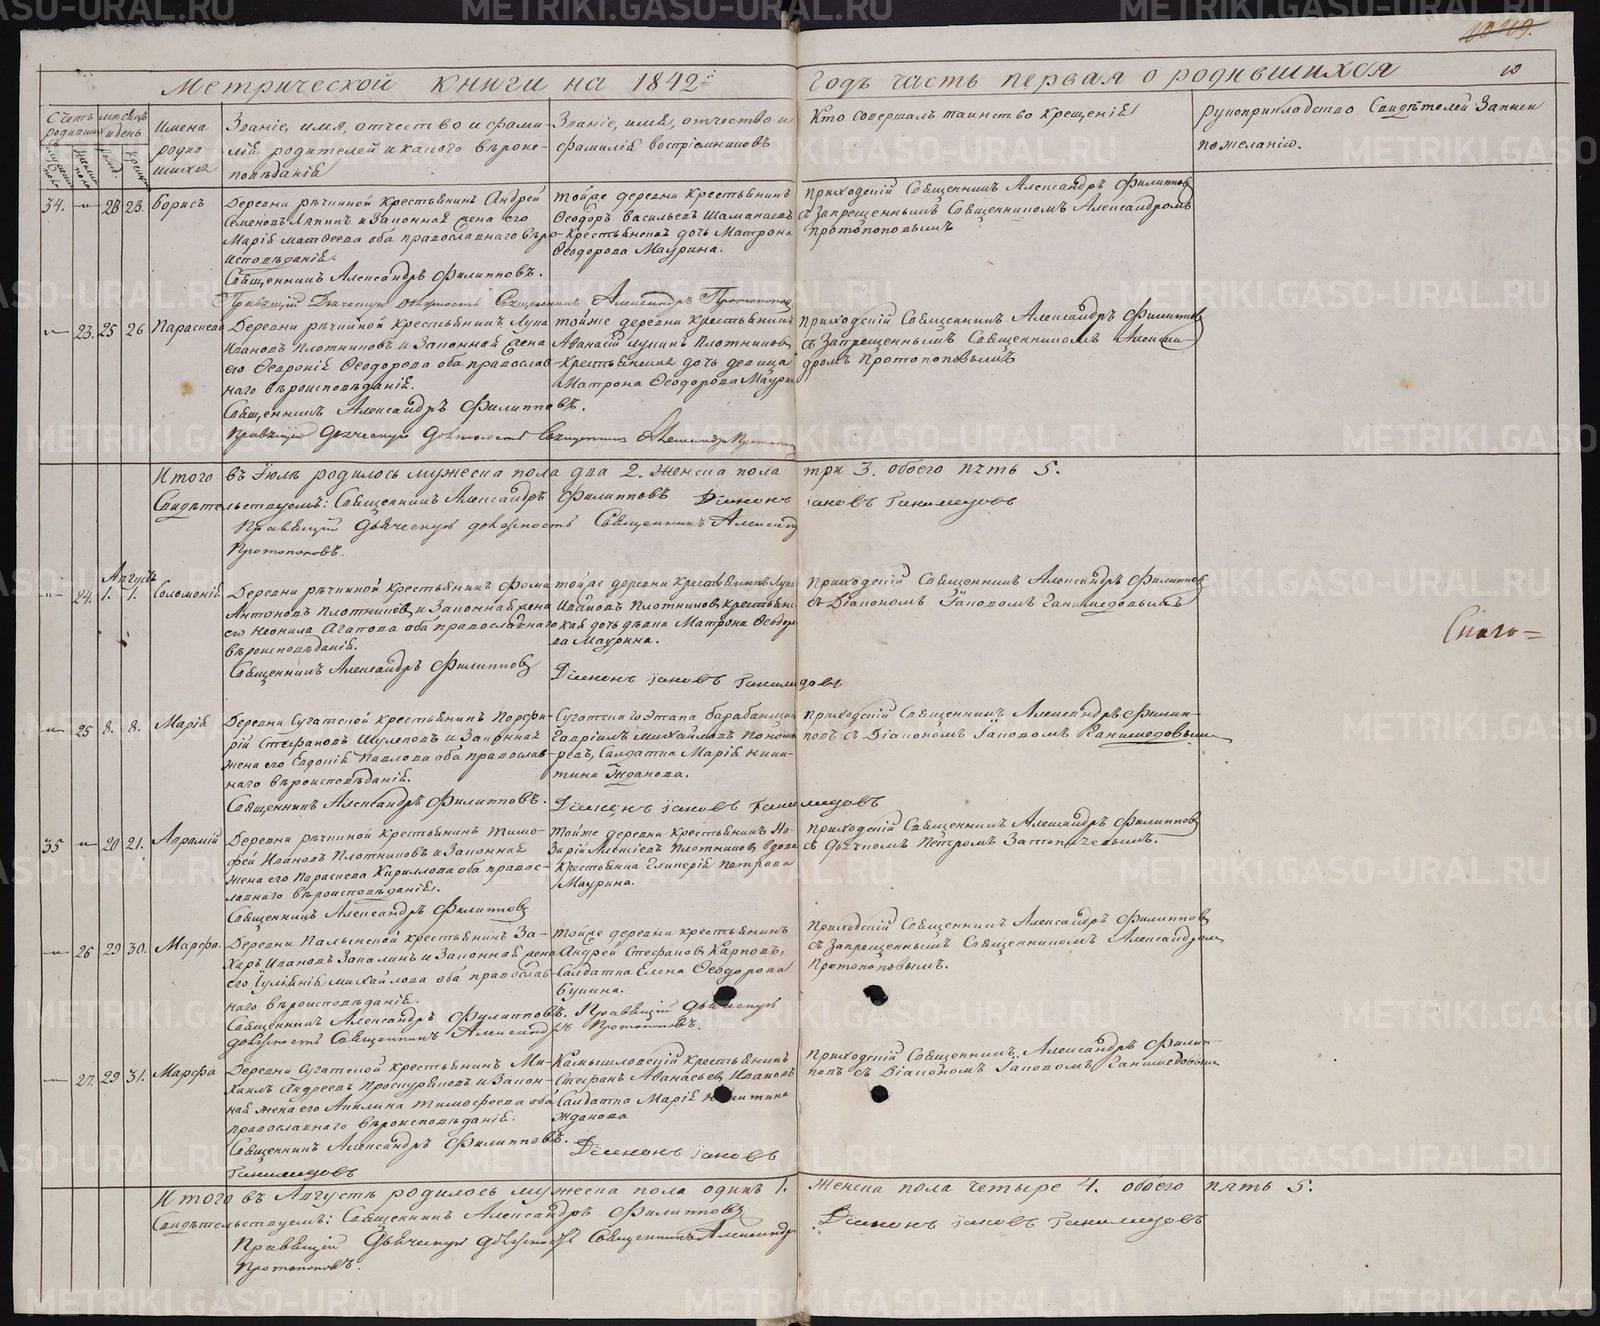 1049.
Метрической книги на 1842й Годъ часть первая о родившихся 10
Счетъ родившихся
мѣсяцъ и день
Имена родившихся
Званіе, имя, отчество и фамилія родителей и какого вѣроисповѣданія
Званіе, имя, отчество и фамилія воспріемниковъ
Кто совершалъ таинство крещенія
Рукоприкладство Свидѣтелей Записи по желанію.
34. 23 23. Борисъ
Деревни рѣчкиной крестьянинъ Андрей
Семеновъ Ляпинъ и Законная жена его
Марія матѳеева оба православнаго вѣро-
исповѣданія.
Священникъ Александръ Филипповъ.
тойже деревни Крестьянинъ
Ѳеодоръ Васильевъ Шаманаевъ
Крестьянская дочь Матрона
Ѳеодорова Маурина.
приходскій Священникъ Александръ Филиповъ
съ Запрещеннымъ Священникомъ Александромъ
Протопоповымъ
Правящій Дьяческую должность Священникъ Александръ Протопоповъ
23. 25 26 Параскева
Деревни рѣчкиной Крестьянинъ Лука
Ивановъ Плотниковъ и Законная жена
его Ѳевронія Ѳеодорова оба православ-
наго вѣроисповѣданія.
Священникъ Александръ Филипповъ.
тойже деревни крестьянинъ
Аѳанасій лукинъ Плотниковъ
Крестьянская дочь девица
Матрона Ѳеодорова Маурина
приходскій Священникъ Александръ Филиповъ
съ Запрещеннымъ Священникомъ Алексан-
дромъ Протопоповымъ
Правящій Дьяческую Должность Священникъ Александръ Протопоповъ
Итого въ Іюлѣ родилось мужеска пола два 2. женска пола три 3. обоего пять 5.
Свидѣтельствуемъ: Священникъ Александръ Филипповъ Діаконъ Іаковъ Ганимедовъ
Правящій Дьяческую должность Священникъ Александръ
Протопоповъ.
Августъ
24. 1. 1. Соломонія
Деревни рѣчкиной крестьянинъ Фома
Антоновъ Плотниковъ и Законная жена
его Неонила Агапова оба православнаго
вѣроисповѣданія.
Священникъ Александръ Филипповъ
тойже деревни крестьянинъ Лука
Ивановъ Плотниковъ, крестьянс-
кая дочь дѣвка Матрона Ѳеодоро-
ва Маурина.
Діаконъ Іаковъ Ганимедовъ
приходскій Священникъ Александръ Филиповъ
съ Діакономъ Іаковомъ Ганимедовымъ
25 8. 8. Марія
Деревни Сугатской крестьянинъ Порфи-
рій Стефановъ Шулеповъ и Законная
жена его Евдокія Павлова оба православ-
наго вѣроисповѣданія.
Священникъ Александръ Филипповъ.
Сугатскаго Этапа барабанщикъ
Гавріилъ Михайловъ Понома-
ревъ, Салдатка Марія Ники-
тина Жданова.
Діаконъ Іаковъ Ганимедовъ
приходскій Священникъ Александръ Филип-
повъ съ Діакономъ Іаковомъ Ганимедовымъ
35 20 21. Авраамій
Деревни рѣчкиной крестьянинъ Тимо-
фей Ивановъ Плотниковъ и Законная
жена его Параскева Кириллова оба правос-
лавнаго вѣроисповѣданія.
Священникъ Александръ Филипповъ
Тойже деревни крестьянинъ На-
зарій Алексіевъ Плотниковъ вдова
Крестьянка Гликерія петрова
Маурина.
приходскій Священникъ Александръ Филипповъ
съ Дьячкомъ Петромъ Затопляевымъ.
26 29 30. Марфа.
Деревни Палкинской крестьянинъ За-
харъ Ивановъ Запалинъ и Законная жена
его Іуліанія михайлова оба православ-
наго вѣроисповѣданія.
Священникъ Александръ Филипповъ. Правящій Дьяческую
должность Священникъ Александръ Протопоповъ.
тойже деревни крестьянинъ
Андрей Стефановъ Карповъ,
Салдатка Елена Ѳеодорова
Букина.
приходскій Священникъ Александръ Филипповъ
съ Запрещеннымъ Священникомъ Александром
Протопоповымъ.
27. 29 31. Марфа
Деревни Сугатской крестьянинъ Ми-
хаилъ Андреевъ Проскуряковъ и Закон-
ная жена его Акилина тимофеева оба
православнаго вѣроисповѣданія.
Священникъ Александръ Филипповъ.
Камышловскій крестьянинъ
Стефанъ Аѳанасьевъ Ивановъ
Салдатка Марія никитина
Жданова
Діаконъ Іаковъ
Ганимедовъ
приходскій Священникъ Александръ Филип-
повъ съ Діакономъ Іаковомъ Ганимедовымъ
Итого въ Августѣ родилось мужеска пола одинъ 1. женска пола четыре 4. обоего пять 5.
Свидѣтельствуемъ: Священникъ Александръ Филипповъ Діаконъ Іаковъ Ганимедовъ
Правящій Дьяческую должность Священникъ Александръ
Протопоповъ.
METRIKI.GASO-URAL.RU